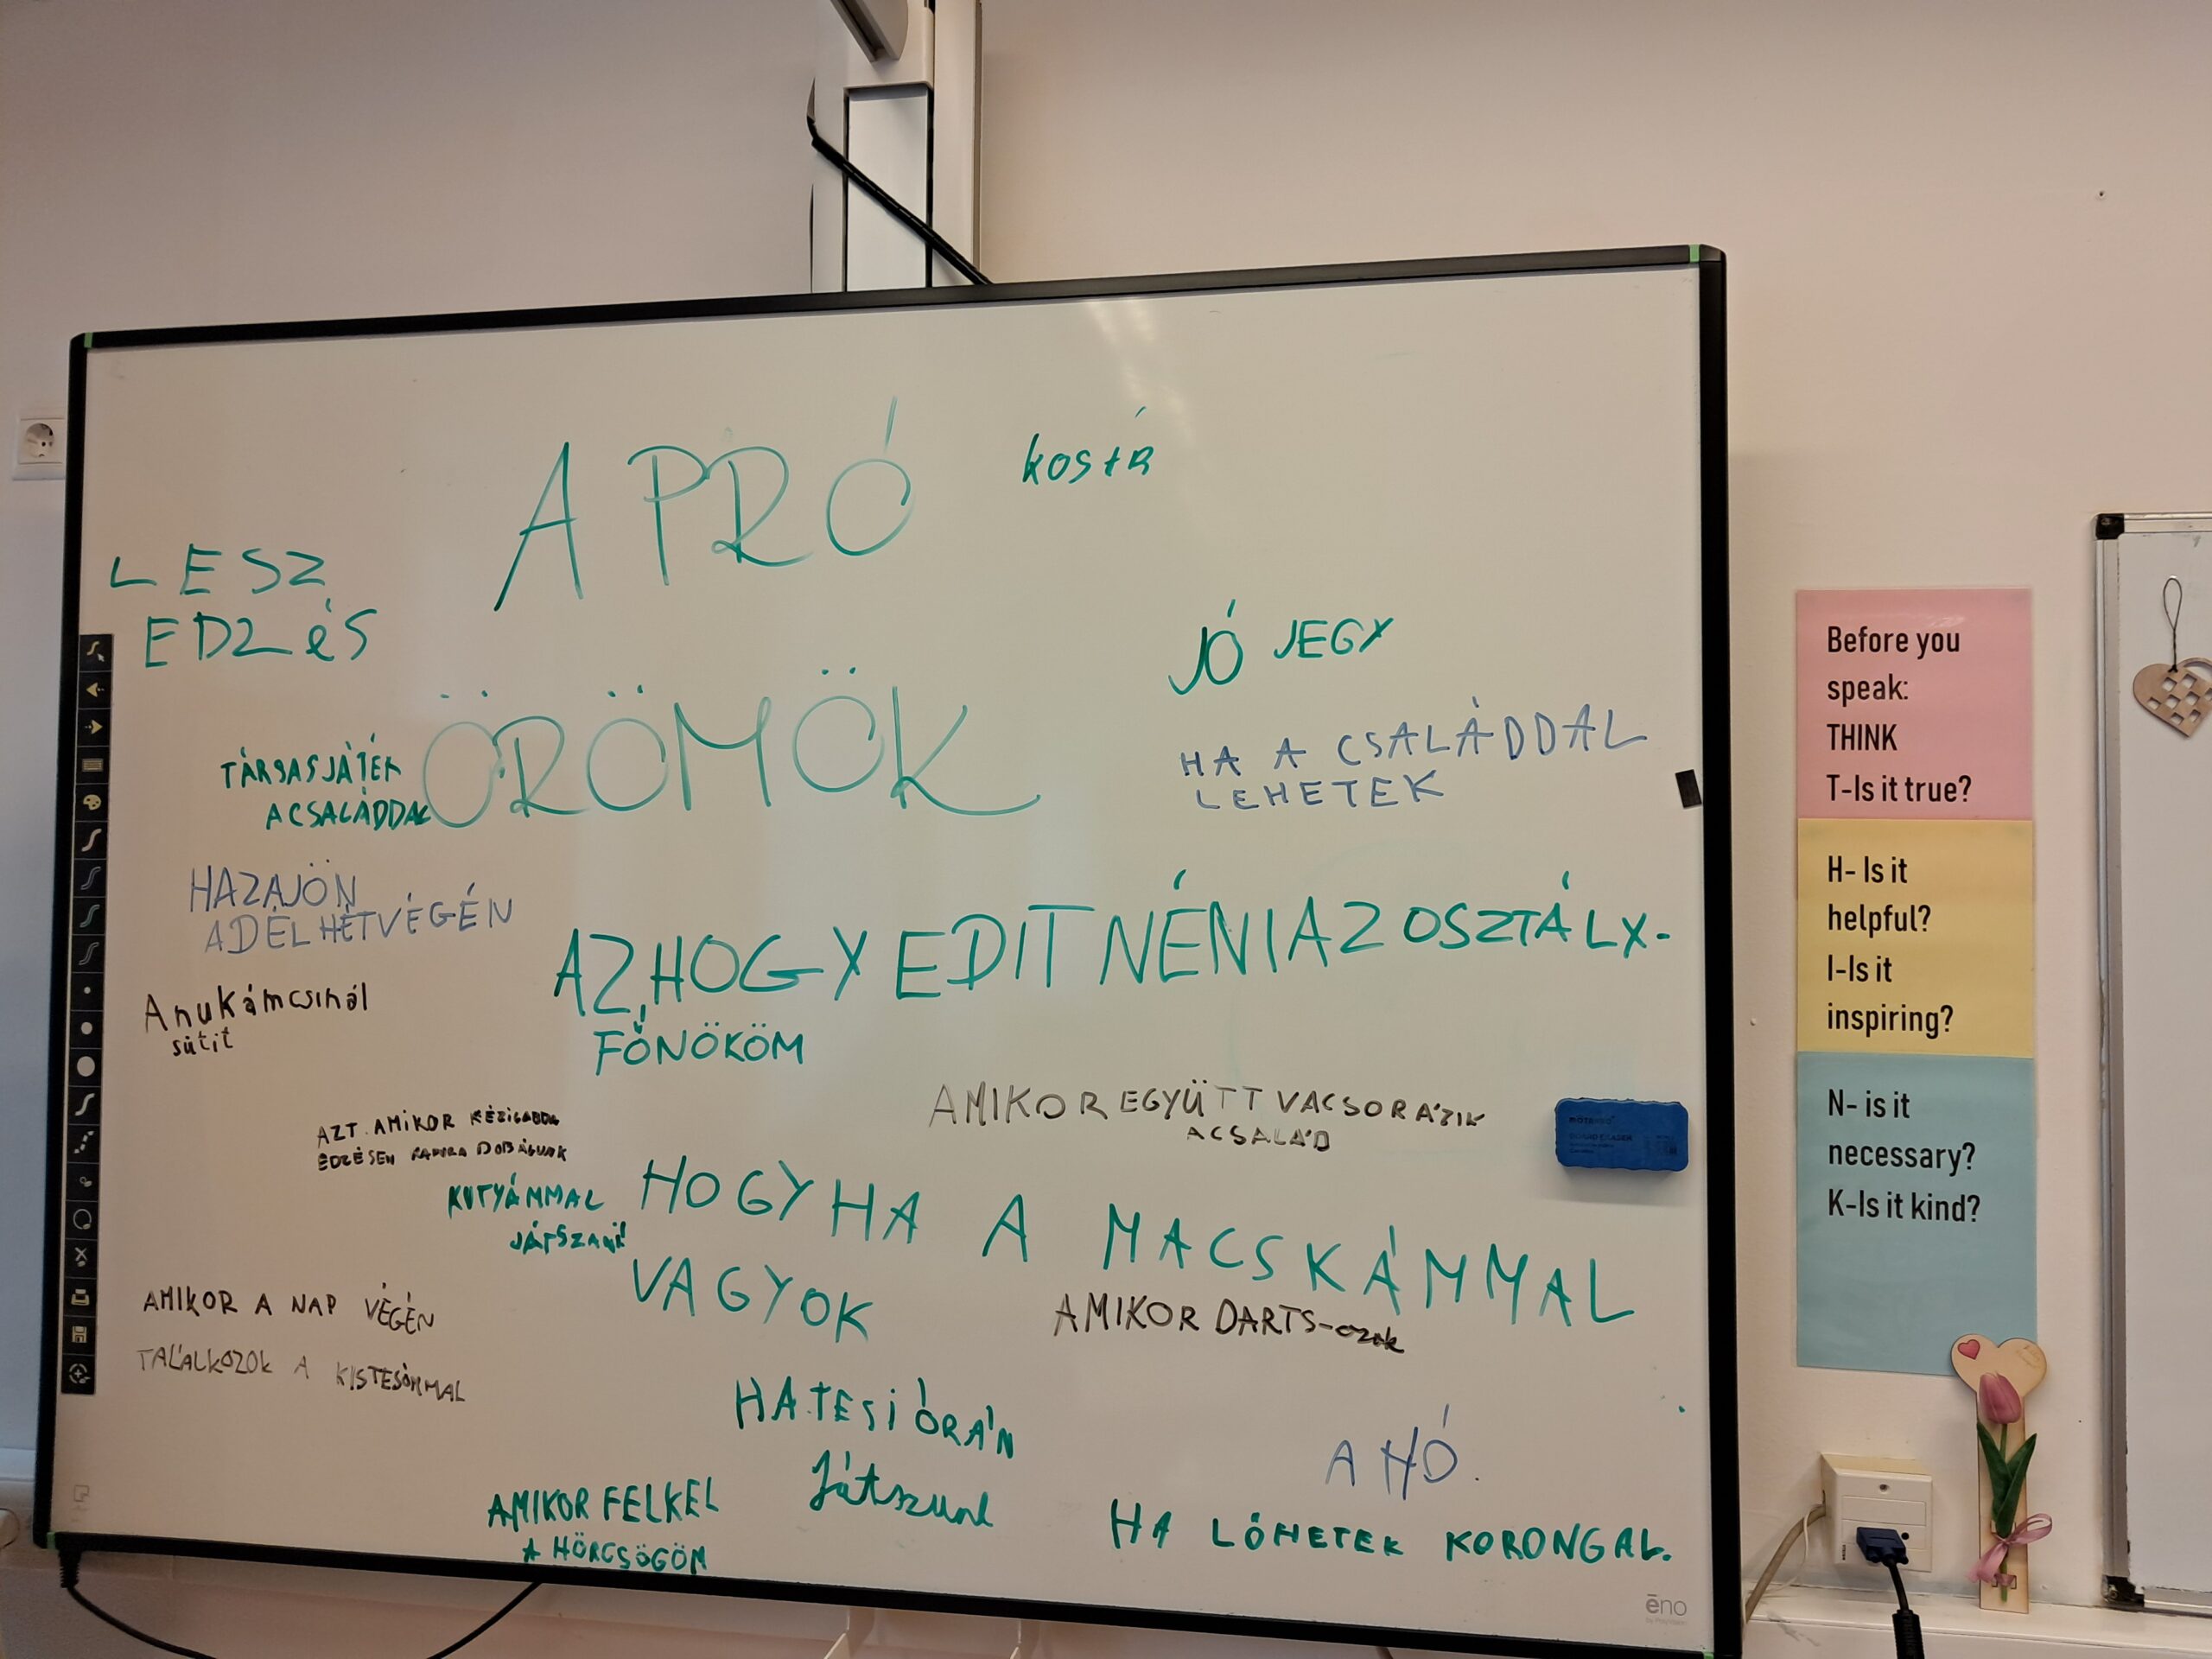 APRÓ
ÖRÖMÖK
LESZ
EDZéS
TÁRSASJÁTÉK
A CSALÁDDAL
HAZAJÖN
ADÉL HÉTVÉGÉN
Anukám csinál
sütit
AZT AMIKOR KÉZILABDA
EDZÉSEN KAPURA DOBÁLUNK
KUTYÁMMAL
JÁTSZANI
AMIKOR A NAP VÉGÉN
TALÁLKOZOK A KISTESÓMMAL
JÓ JEGY
HA A CSALÁDDAL
LEHETEK
AZ, HOGY EDIT NÉNI AZ OSZTÁLY-
FŐNÖKÖM
AMIKOR EGYÜTT VACSORÁZIK
A CSALÁD
HOGY HA A MACSKÁMMAL
VAGYOK
AMIKOR DARTS-ozok
HA TESI ÓRÁN
Játszunk
AMIKOR FELKEL
A HÖRCSÖGÖM
A HÓ.
HA LŐHETEK KORONGAL.
ēno
Before you
speak:
THINK
T-Is it true?
H- Is it
helpful?
I-Is it
inspiring?
N- is it
necessary?
K-Is it kind?